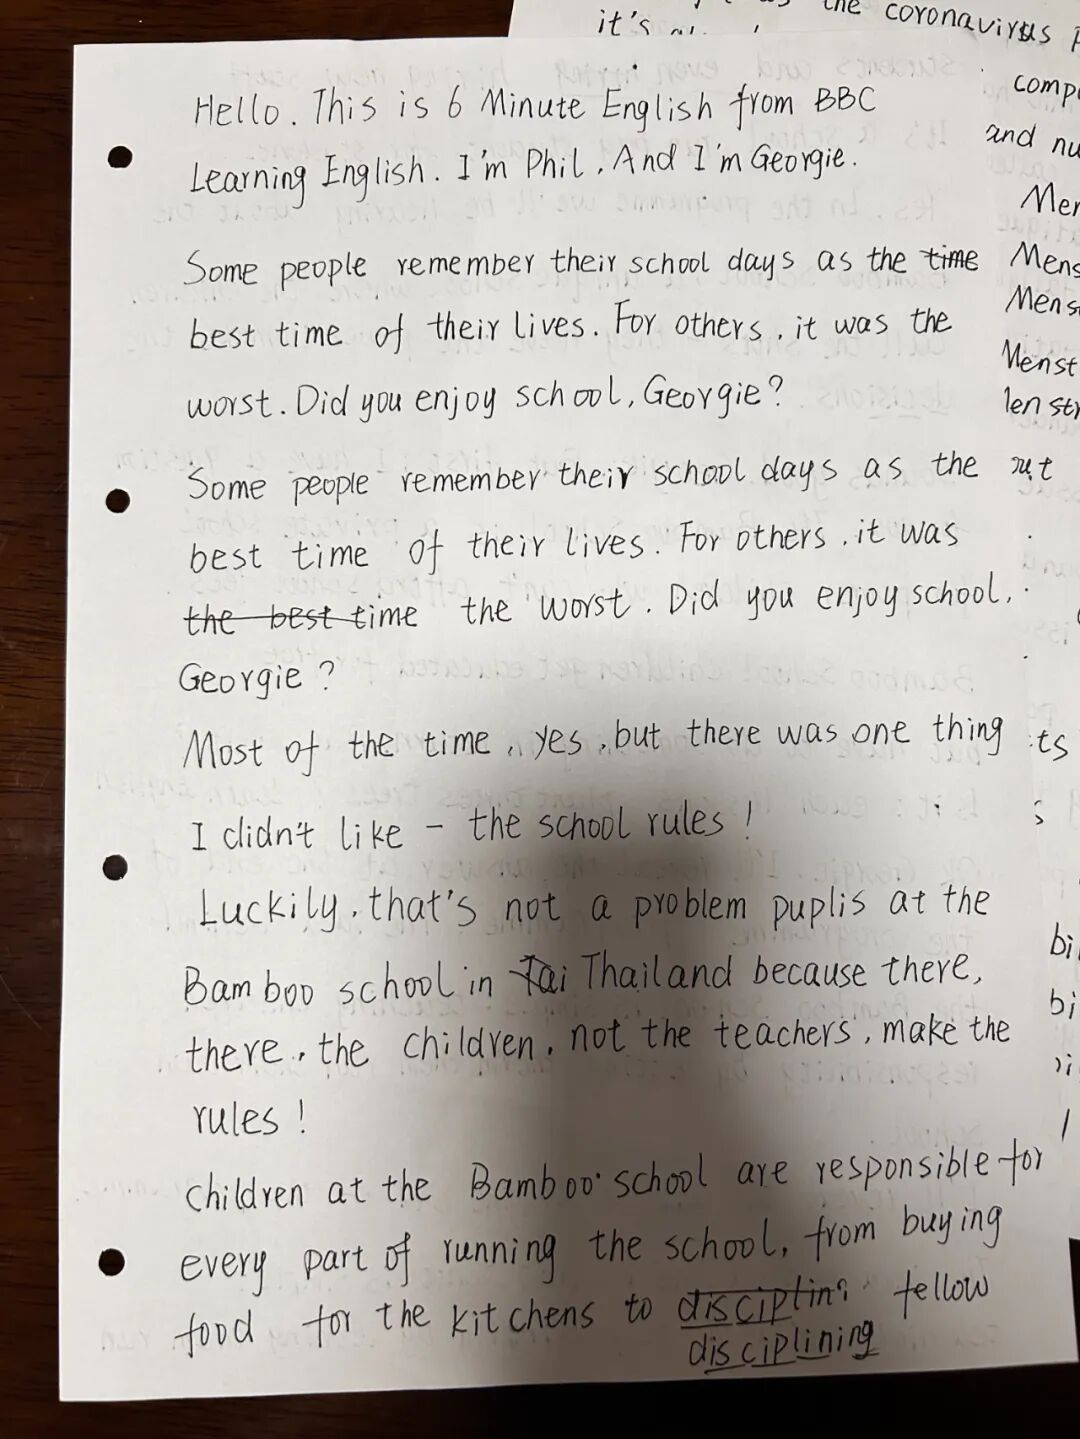 it's
the coronavirus
Hello. This is 6 Minute English from BBC
Learning English. I'm Phil. And I'm Georgie.
Some people remember their school days as the time
best time of their lives. For others, it was the
worst. Did you enjoy school, Georgie?
Some people remember their school days as the
best time of their lives. For others, it was
the best time the worst. Did you enjoy school,
Georgie?
Most of the time, yes, but there was one thing
I didn't like - the school rules!
Luckily, that's not a problem puplis at the
Bamboo school in Tai Thailand because there,
there, the children, not the teachers, make the
rules!
children at the Bamboo school are responsible for
every part of running the school, from buying
food for the kitchens to fellow
disciplining
and